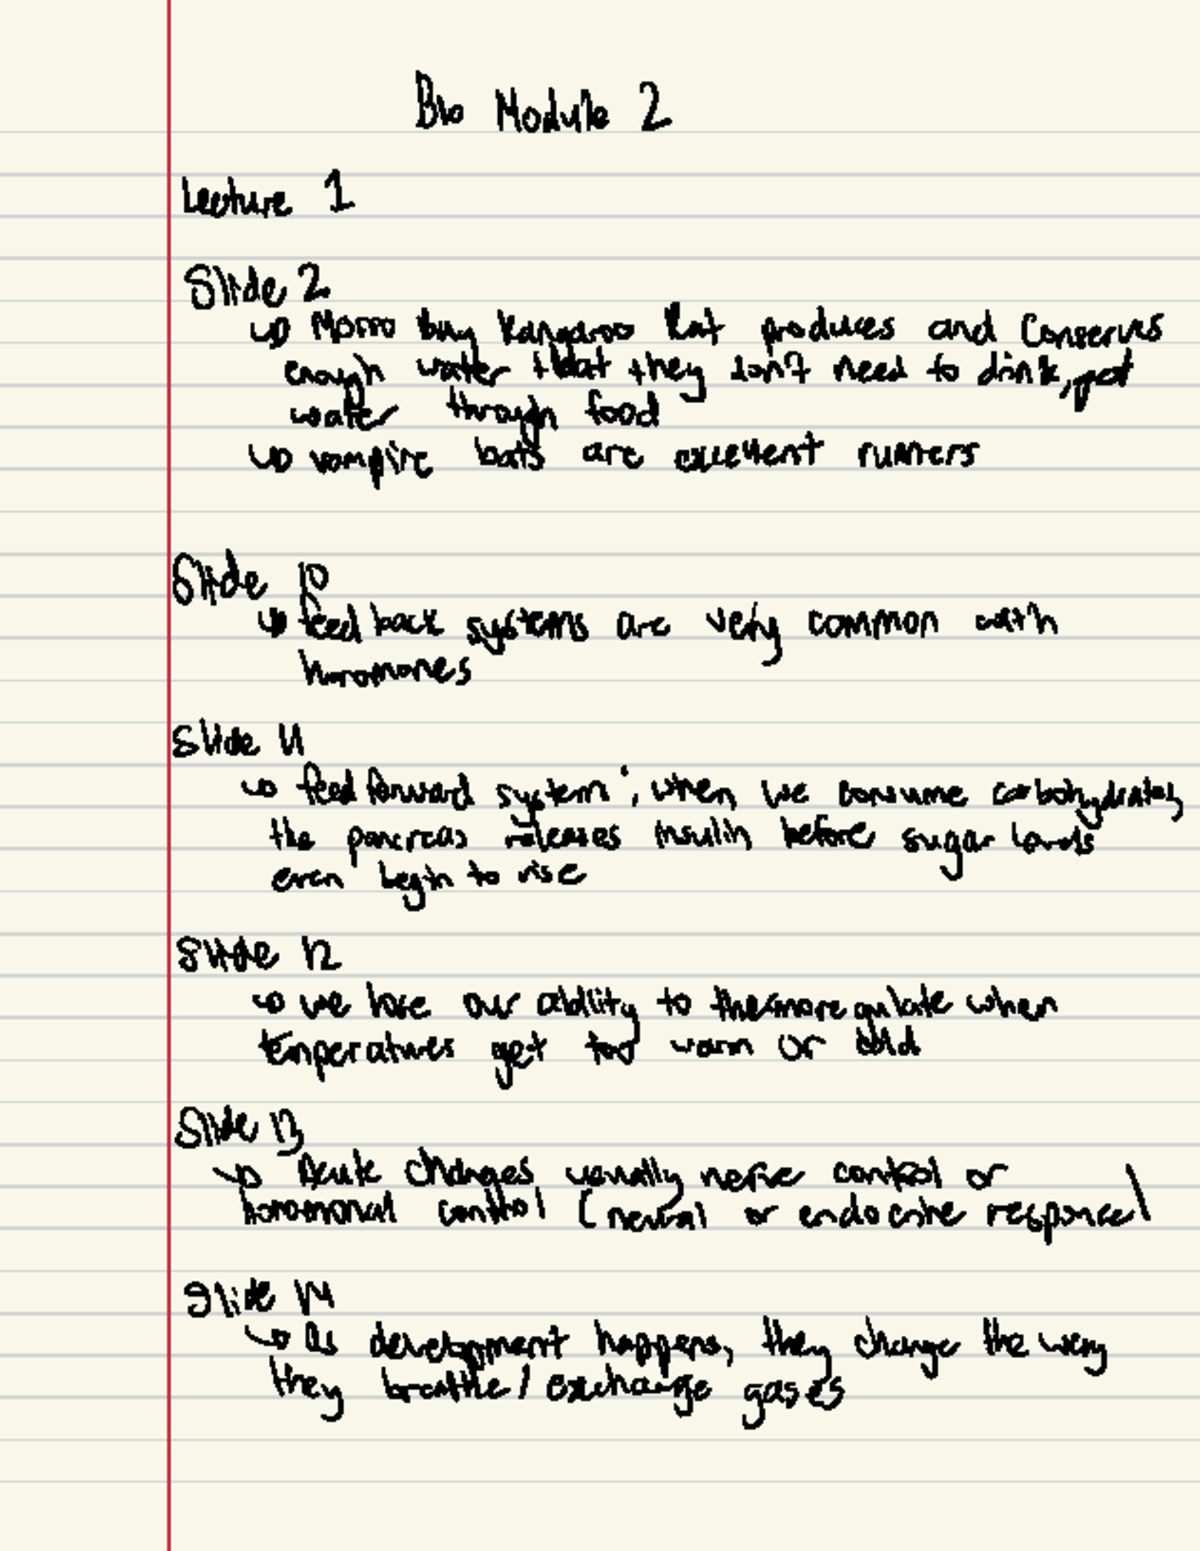 Bio Module 2
Lecture 1
Slide 2
↳ Morro bay Kangaroo Rat produces and conserves
enough water that they don't need to drink, get
water through food
↳ vampire bats are excellent runners
Slide 10
↳ feed back systems are very common with
horomones
Slide 11
↳ feed forward system: when we consume carbohydrates,
the pancreas releases insulin before sugar levels
even begin to rise
Slide 12
↳ we lose our ability to thermoregulate when
temperatures get too warm or cold
Slide 13
↳ Acute changes usually nerve control or
horomonal control (neural or endocrine response)
Slide 14
↳ as development happens, they change the way
they breathe / exchange gases